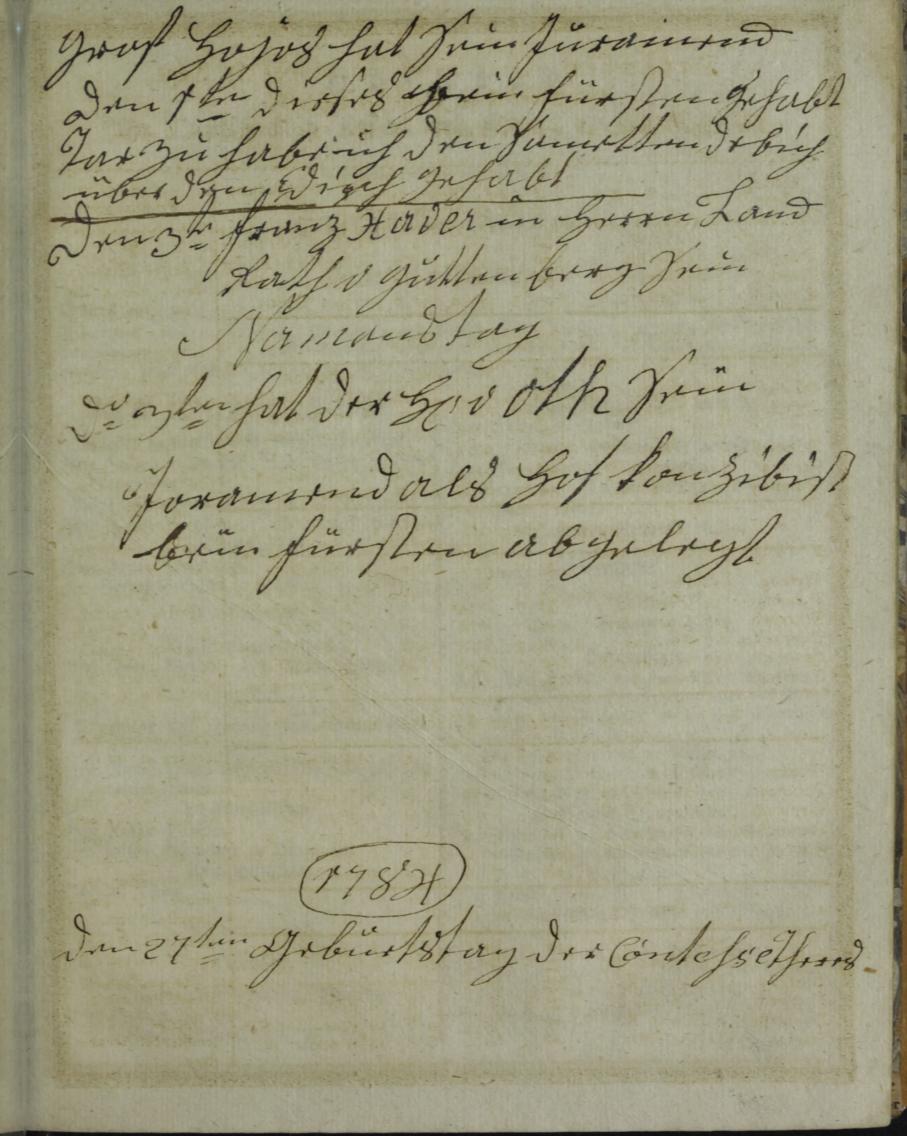 Graf Hojos hat Sein Jurament
den 1ten dieses bein fürsten gehabt
Tarzu habe ich den Samettendebich
über den disch gehabt
Den 3t franz Xaver in Herrn Land
Rath v Guttenberg Sein
Namenstag
hat der H v Oth Sein
Joramend als Hof konzibist
bein fürsten abgelegt
1784
den 27ten Geburtstag der Contehse Theres